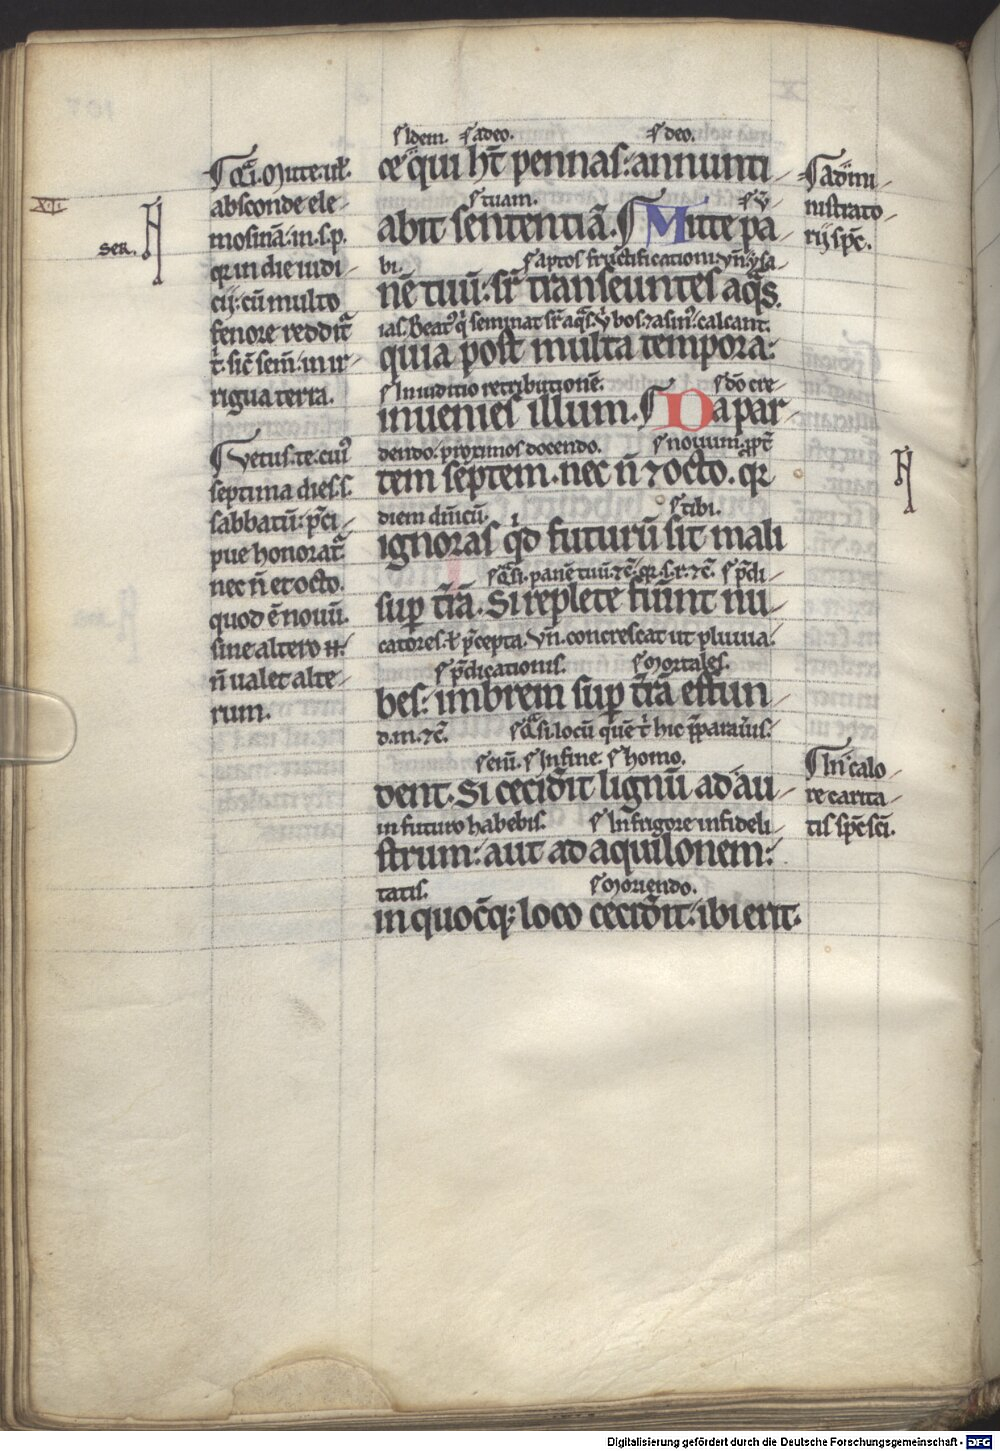 ſ Idem. ſ adeo. ſ deo.
ce qui hn̄t pennas: annunti
ſ tuam.
abit sententiā. ¶ Mitte pa
bi. ſ aptos fructificationi: vn̄ ysa
nē tuū: sr̄ transeuntes aqͣs.
ias. Beatꝰ qͥ seminat sr̄ aqͣs. vͥ bos ⁊ asinꝰ calcant.
quia post multa tempora:
ſ In iuditio retributionē. ſ dō cre
inuenies illum. ¶ Da par
dendo. proximos docendo. ſ nouum. ꝓpt̄
tem septem. nec n̄ ⁊ octo. qr
diem dn̄icū. ſ tibi.
ignoras qͥd futurū sit mali
ſ Qͣsi. panē tuū. ⁊c̄. qr. s. r. ⁊c̄. ſ p̄di
suꝑ t̄rā. Si replete fuint nu
catores. ł p̄cepta. vn̄. concrescat ut pluuia.
ſ p̄dicationis. ſ Mortales.
bes: imbrem suꝑ t̄rā effun
d. m. ⁊c̄. ſ Qͣsi. locū quē t̄ hic p̄paraūis.
ſ eni. ſ In fine. ſ homo.
dent. Si cecidit lignū ad au
in futuro habebis. ſ In frigore infideli
strum: aut ad aquilonem:
tatis. ſ Moriendo.
in quocūqꝫ loco cecidit: ibi erit.
X.I.
ser.
¶ Qͣi. Mitte. ul̄.
absconde ele
mosinā. in. s. p.
qr in die iudi
cij. cū multo
fenore redditͬ
t̄. sic̄ sem̄. in ir
rigua terra.
¶ Vetus. te. cuiꝰ
septima dies. s.
sabbatū. p̄ci
pue honoratͬ.
nec n̄ et octo.
quod ē nouū.
sine altero H.
n̄ ualet alte
rum.
¶ adm̄i
nistrato
rij sp̄c.
¶ In calo
re carita
tis sp̄c sc̄i.
Digitalisierung gefördert durch die Deutsche Forschungsgemeinschaft - DFG